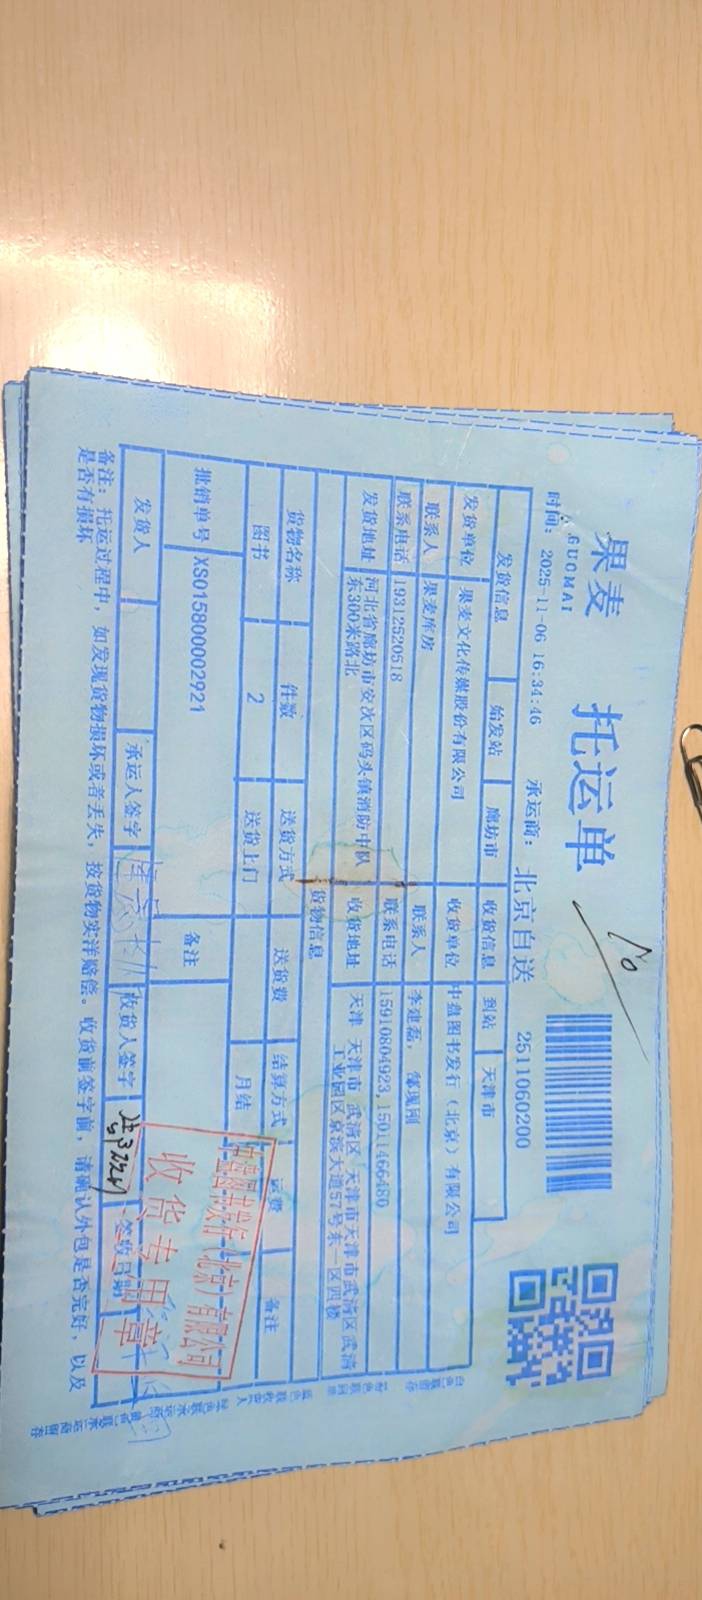 果麦 托运单
GUOMAI
时间: 2025-11-06 16:34:46 承运商: 北京自送 2511060200
发货信息 始发站 廊坊市 收货信息 到站 天津市
发货单位 果麦文化传媒股份有限公司 收货单位 中盘图书发行(北京)有限公司
联系人 果麦库房 联系人 李建磊,
联系电话 19312520518 联系电话 15910804923,15011466480
发货地址 河北省廊坊市安次区码头镇消防中队 收货地址 天津 天津市 武清区 天津市天津市武清区武清
东300米路北 工业园区京滨大道57号东一区四楼
货物信息
货物名称 件数 送货方式 送货费 结算方式 运费 备注
图书 2 送货上门 月结
批销单号 XS015800002921 备注
发货人 承运人签字 收货人签字 签收日期
备注: 托运过程中, 如发现货物损坏或者丢失, 按货物实洋赔偿。收货前签字前, 请确认外包是否完好, 以及
是否有损坏
中盘图书发行(北京)有限公司
收货专用章